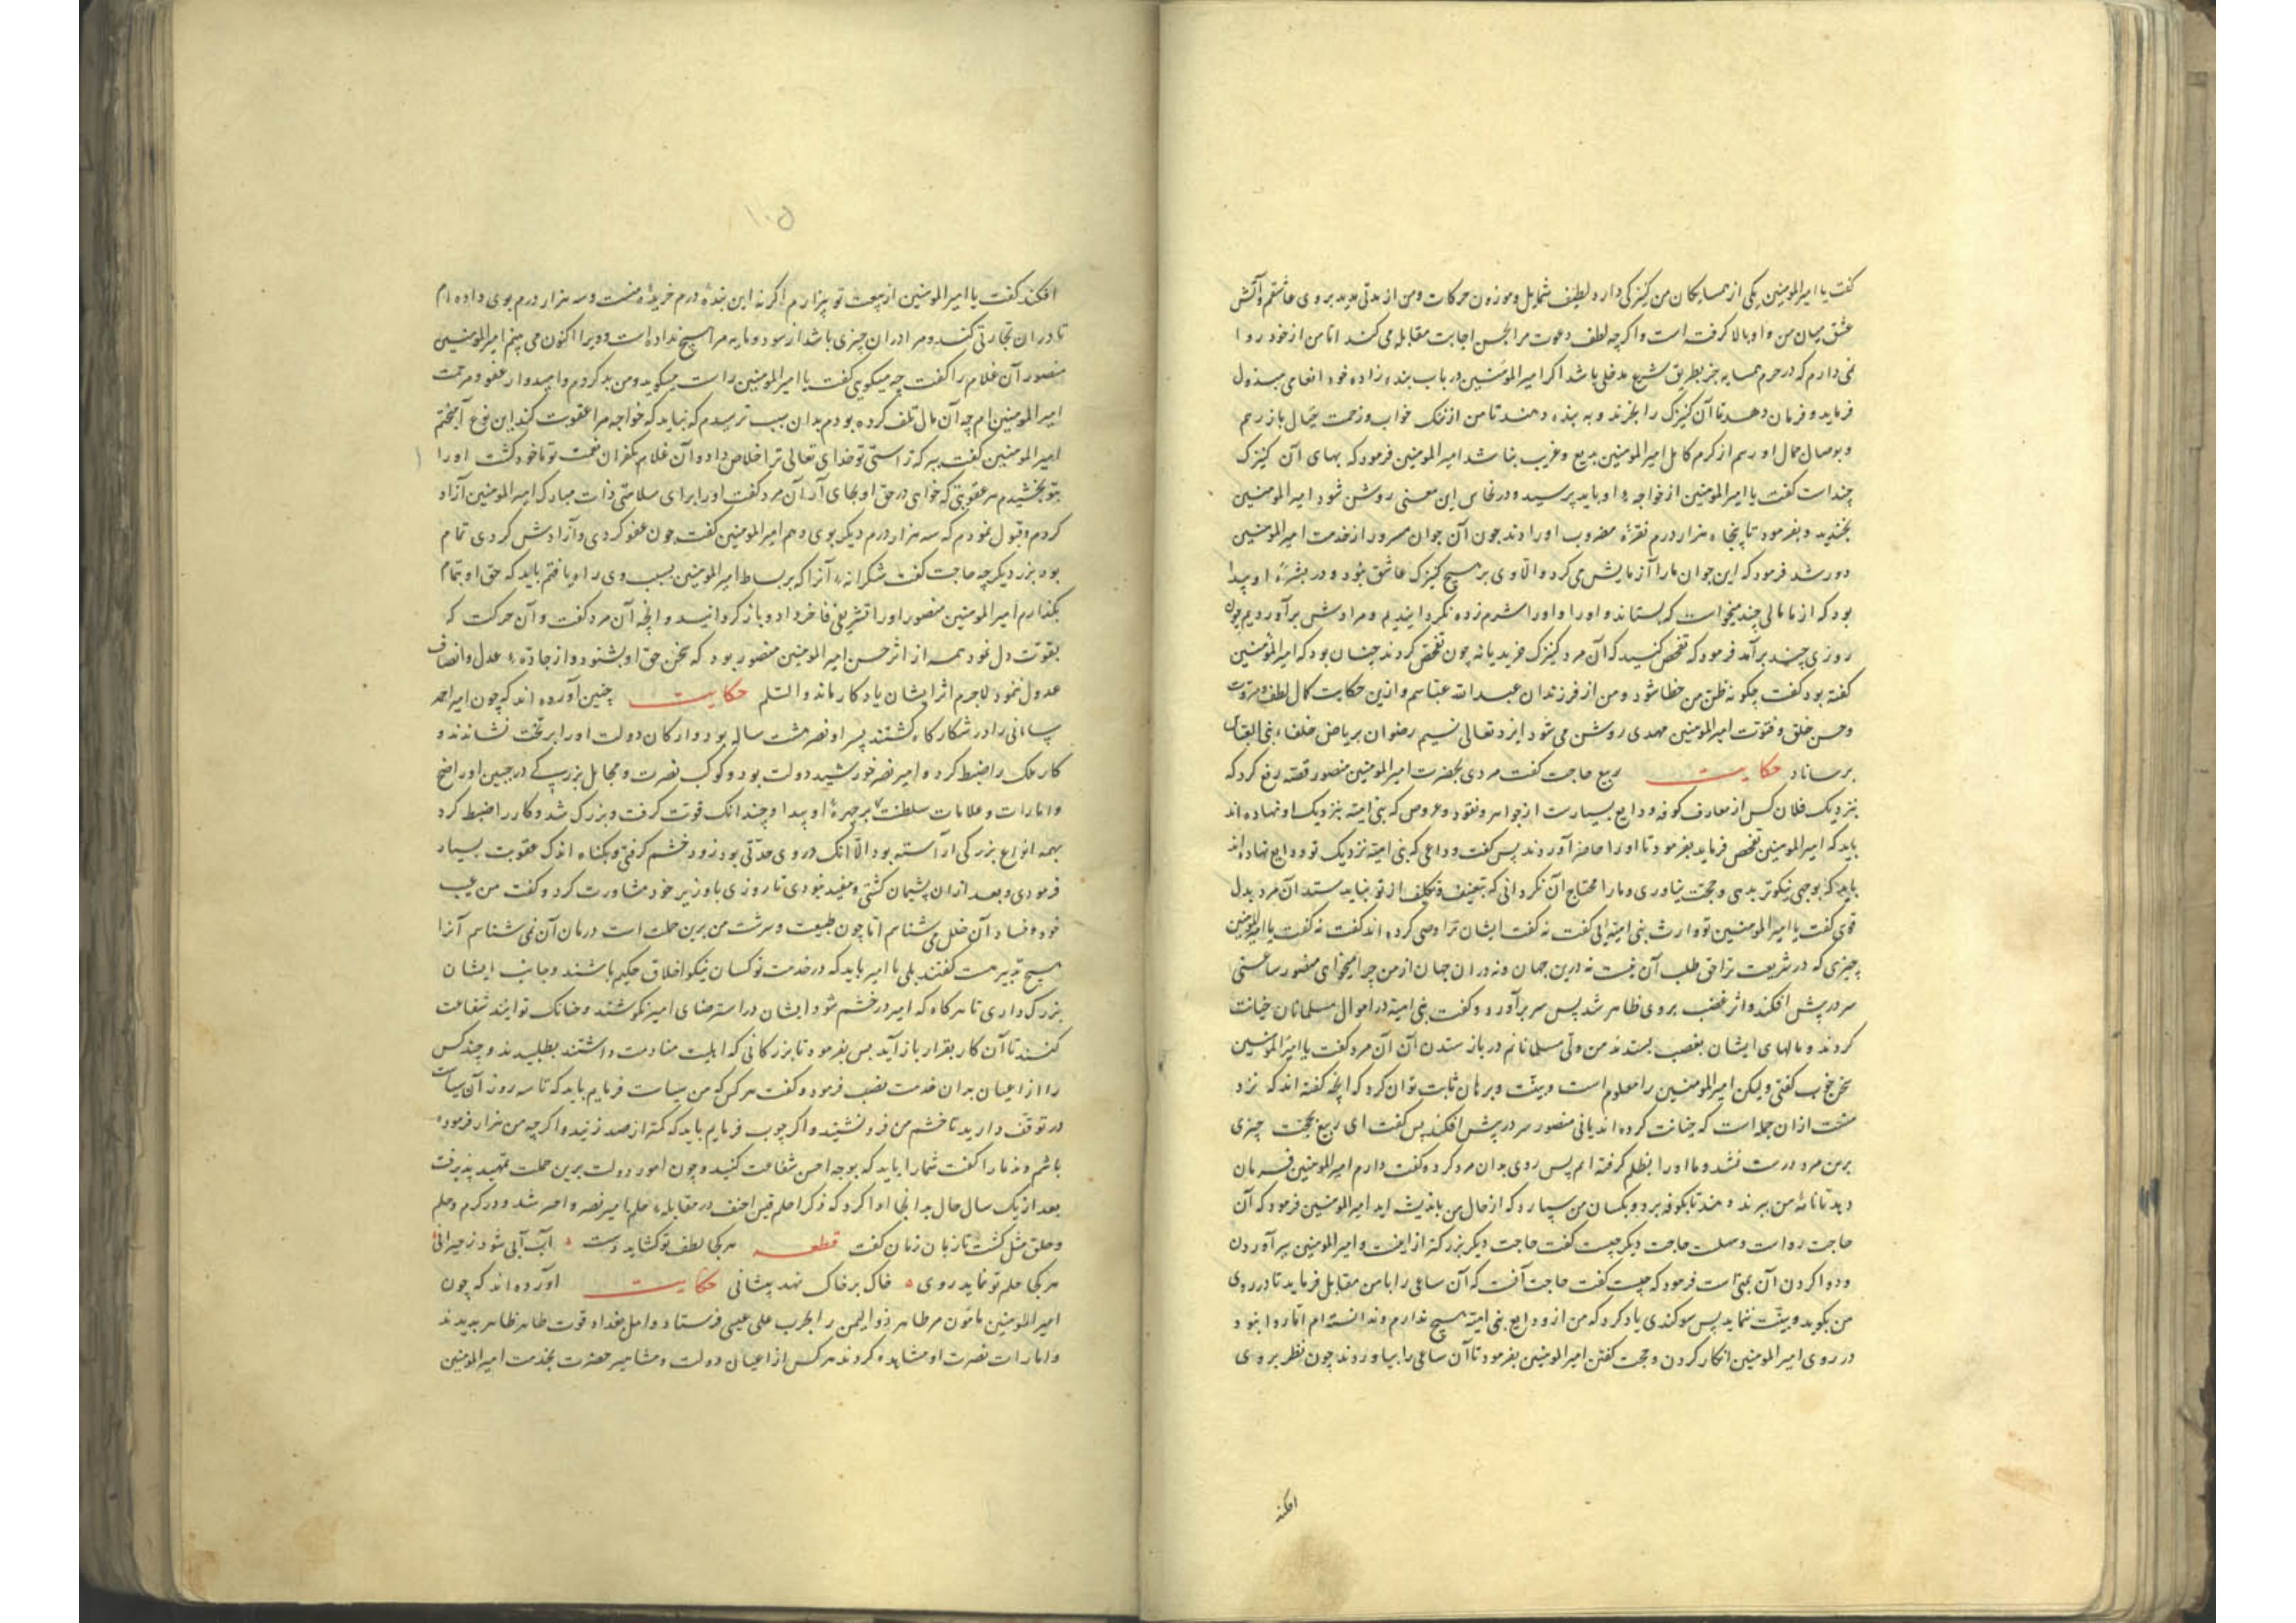 گفت یا امیرالمومنین یکی از همسایگان من کنیزکی دارد لطیف شمایل و موزون حرکات و من از مدتی مدید بر وی عاشقم و آتش
عشق میان من و او بالا گرفته است و اگر چه لطف دعوت مرا بحسن اجابت مقابله می کند اما من از خود روا
نمی دارم که در حرم همسایه جز بطریق شرع مدخلی باشد اگر امیرالمومنین در باب بنده زاده خود انعامی مبذول
فرماید و فرمان دهد تا آن کنیزک را بخرند و به بنده دهند تا من از ننگ خواب و زحمت خیال باز رهم
و بوصال جمال او رسم از کرم کامل امیرالمومنین بدیع و غریب نباشد امیرالمومنین فرمود که بهای آن کنیزک
چند است گفت یا امیرالمومنین از خواجه او باید پرسید و در نخاس این معنی روشن شود امیرالمومنین
بخندید و بفرمود تا پنجاه هزار درم نقره مضروب او را دادند چون آن جوان مسرور از خدمت امیرالمومنین
دور شد فرمود که این جوان ما را آزمایش می کرد و الا وی بر هیچ کنیزک عاشق نبود و در بشره او پیدا
بود که از ما مالی چند میخواست که بستاند و او را شرم زده نگردانیدیم و مرادش برآوردیم چون
روزی چند برآمد فرمود که تفحص کنید که آن مرد کنیزک خرید یا نه چون تفحص کردند چنان بود که امیرالمومنین
گفته بود گفت چگونه ظن من خطا شود و من از فرزندان عبدالله عباسم و ازین حکایت کمال لطف و مروت
و حسن خلق و فتوت امیرالمومنین مهدی روشن می شود ایزد تعالی نسیم رضوان بریاض خلفاء بنی العباس
برساناد حکایت ربیع حاجب گفت مردی بحضرت امیرالمومنین منصور قصه رفع کرد که
بنزدیک فلان کس از معارف کوفه ودایع بسیارست از جواهر و نقود و عروض که بنی امیه بنزدیک او نهاده اند
باید که امیرالمومنین تفحص فرماید بفرمود تا او را حاضر آوردند پس گفت ودایعی که بنی امیه نزدیک تو ودایع نهاده اند
باید که بوجهی نیکوتر بدهی و حجت نیاوری و ما را محتاج آن نگردانی که بتعنیف و تکلیف از تو بباید ستد آن مرد بدل
قوی گفت یا امیرالمومنین تو وارث بنی امیه ای گفت نه گفت ایشان ترا وصی کرده اند گفت نه گفت یا امیرالمومنین
چیزی که در شریعت ترا حق طلب آن نیست نه درین جهان و نه در آن جهان از من چرا میخواهی منصور ساعتی
سر در پیش افکند و اثر غضب بر وی ظاهر شد پس سر برآورد و گفت بنی امیه در اموال مسلمانان خیانت
کردند و مالهای ایشان بغصب بستدند من ولی مسلمانانم در باز ستدن آن آن مرد گفت یا امیرالمومنین
سخن خوب گفتی ولیکن امیرالمومنین را معلوم است و بینت و برهان ثابت توان کرد که آنچه گفته اند که نزد
منست از آن جمله است که خیانت کرده اند یا نی منصور سر در پیش افکند پس گفت ای ربیع بحجت چیزی
برین مرد درست نشد و ما او را بظلم گرفته ایم پس روی بدان مرد کرد گفت دارم امیرالمومنین فرمان
دهد تا نامه من ببرند و هند تا بکوفه برد و بکسان من سپارد که از حال من باندیشه اند امیرالمومنین فرمود که آن
حاجت رواست و سهلست حاجت دیگر چیست گفت حاجت دیگر بزرگتر ازینست و امیرالمومنین برآوردن
و روا کردن آن فرمود که چیست گفت حاجت آنست که آن ساعی را با من مقابل فرماید تا در روی
من بگوید و بینت نماید پس سوگندی یاد کرد که من از ودایع بنی امیه هیچ ندارم و ندانسته ام اما روا نبود
در روی امیرالمومنین انکار کردن و حجت گفتن امیرالمومنین بفرمود تا آن ساعی را بیاوردند چون نظر بر وی
افکند
۱۰۵
افکند گفت یا امیرالمومنین از بیعت تو بیزارم اگر نه این بنده درم خریده منست و سه هزار درم بوی داده ام
تا در آن تجارتی کند و مرا در آن چیزی باشد از سود و مایه مرا هیچ نداده است و ویرا اکنون می بینم امیرالمومنین
منصور آن غلام را گفت چه میگویی گفت یا امیرالمومنین راست میگوید و من بد کردم و امیدوار عفو و مرحمت
امیرالمومنین ام چه آن مال تلف کرده بودم بدان سبب ترسیدم که نباید که خواجه مرا عقوبت کند این نوع آمیختم
امیرالمومنین گفت راستی تو خدای تعالی ترا خلاص داد و آن غلام بکفران نعمت تو ماخوذ گشت او را
بتو بخشیدم هر عقوبتی که خواهی در حق او بجای آر آن مرد گفت او را برای سلامتی ذات مبارک امیرالمومنین آزاد
کردم و قبول نمودم که سه هزار درم دیگر بوی دهم امیرالمومنین گفت چون عفو کردی و آزادش کردی تمام
بود بزر دیگر چه حاجت گفت شکرانه آنرا که بر بساط امیرالمومنین بسبب وی راه یافتم باید که حق او بتمام
بگذارم امیرالمومنین منصور او را تشریفی فاخر داد و باز گردانید و آنچه آن مرد گفت و آن حرکت که
بقوت دل نمود همه از اثر حسن امیرالمومنین منصور بود که سخن حق او بشنود و از جاده عدل و انصاف
عدول ننمود لاجرم اثر ایشان یادگار ماند والسلم حکایت چنین آورده اند که چون امیر احمد
سامانی را در شکارگاه کشتند پسر او نصر هشت ساله بود و ارکان دولت او را بر تخت نشاندند و
کار ملک را ضبط کرد و امیر نصر خورشید دولت بود و کوکب نصرت و مخایل بزرگی در جبین او واضح
و امارات و علامات سلطنت بر چهره او پیدا و چندانک قوت گرفت و بزرگ شد و کار را ضبط کرد
بهمه انواع بزرگی آراسته بود الا آنک در وی حدتی بود زود خشم گرفتی و بگناه اندک عقوبت بسیار
فرمودی و بعد از آن پشیمان گشتی و مفید نبودی تا روزی با وزیر خود مشاورت کرد و گفت من عیب
خود و فساد آن خلل می شناسم اما چون طبیعت و سرشت من برین جملت است درمان آن نمی شناسم آنرا
هیچ تدبیر هست گفتند بلی یا امیر باید که در خدمت تو کسان نیکو اخلاق حکیم باشند و جانب ایشان
بزرگ داری تا هر گاه که امیر در خشم شود ایشان در استرضای امیر بکوشند و چنانک توانند شفاعت
کنند تا آن کار بقرار باز آید پس بفرمود تا بزرگانی که اهلیت منادمت داشتند بطلبیدند و چند کس
را از اعیان بدان خدمت نصب فرمود و گفت هر کس که من سیاست فرمایم باید که تا سه روز آن سیاست
در توقف دارید تا خشم من فرو نشیند و اگر چوب فرمایم باید که کمتر از صد زنید و اگر چه من هزار فرموده
باشم و ندما را گفت شما را باید که بوجه احسن شفاعت کنید و چون امور دولت برین جملت تمهید پذیرفت
بعد از یک سال حال بدانجا ادا کرد که ذکر احلم قیس احنف در مقابله حلم امیر نصر و احمر شد و در کرم و حلم
و خلق مثل گشت تا زبان زمان گفت قطعه هر کجا لطف تو گشاید دست آب آبی شود ز حیرانی
هر کجا حلم تو نماید روی خاک بر خاک نهد پیشانی حکایت آورده اند که چون
امیرالمومنین مامون مر طاهر ذوالیمین را بحرب علی عیسی فرستاد و اهل بغداد قوت طاهر ظاهر بدیدند
و امارات نصرت او مشاهده کردند هر کس از اعیان دولت و مشاهیر حضرت بخدمت امیرالمومنین